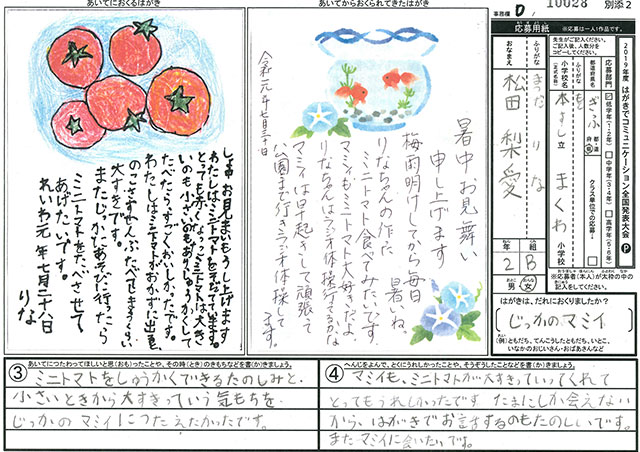 あいてにおくるはがき
あいてからおくられてきたはがき
事務欄 D / 10028 別添2
しょ中お見まいもうし上げます
わたしは、ミニトマトをそだてています。
とっても赤くなったミニトマトは、大き
いのも小さいのもありしゅうかくして
たべたらすごくおいしかったです。
わたしは、ミニトマトがおかずに出ると
のこさずぜんぶたべてしまうくらい
大すきです。
またじっかにあそびに行ったら
ミニトマトをたべさせて
あげたいです。
れいわ元年七月二十八日
りな
暑中お見舞い
申し上げます
梅雨明けしてから毎日暑いね。
りなちゃんの作った
ミニトマト食べてみたいです。
マミィもミニトマト大好きだよ
りなちゃんはラジオ体操行ってるかな
マミィは早起きして頑張って
公園まで行きラジオ体操して
ます。
令和元年七月三十日
応募用紙
※応募は一人1作品です。
先生がご記入ください。
ご記入後、人数分を
コピーしてください。
2019年度 はがきでコミュニケーション全国発表大会 P
応募部門
低学年(1・2年)
中学年(3・4年)
高学年(5・6年)
都道府県名
ぎふ
都・道
府・県
クラス単位での応募
ふりがな
小学校名
(正式名称)
本す市立 まくわ 小学校
ふりがな
まつだ りな
おなまえ
松田 梨愛
年 組
2 B
男 女
※応募者(本人)が太枠の中の
記入をしてください。
はがきは、だれにおくりましたか?
(じっかのマミィ)
(例)ともだち、てんこうしたともだち、いとこ、
いなかのおじいさん・おばあさんなど
③ あいてにつたわってほしいと思(おも)ったことや、その時(とき)のきもちなどを書(か)きましょう。
ミニトマトをしゅうかくできるたのしみと、
小さいときから大すきっていう気もちを
じっかの マミィにつたえたかったです。
④ へんじをよんで、とくにうれしかったことや、そうぞうしたことなどを書(か)きましょう。
マミィも、ミニトマトが大すきっていってくれて
とってもうれしかったです たまにしか会えない
から、はがきでお話するのもたのしいです。
またマミィに会いたいです。